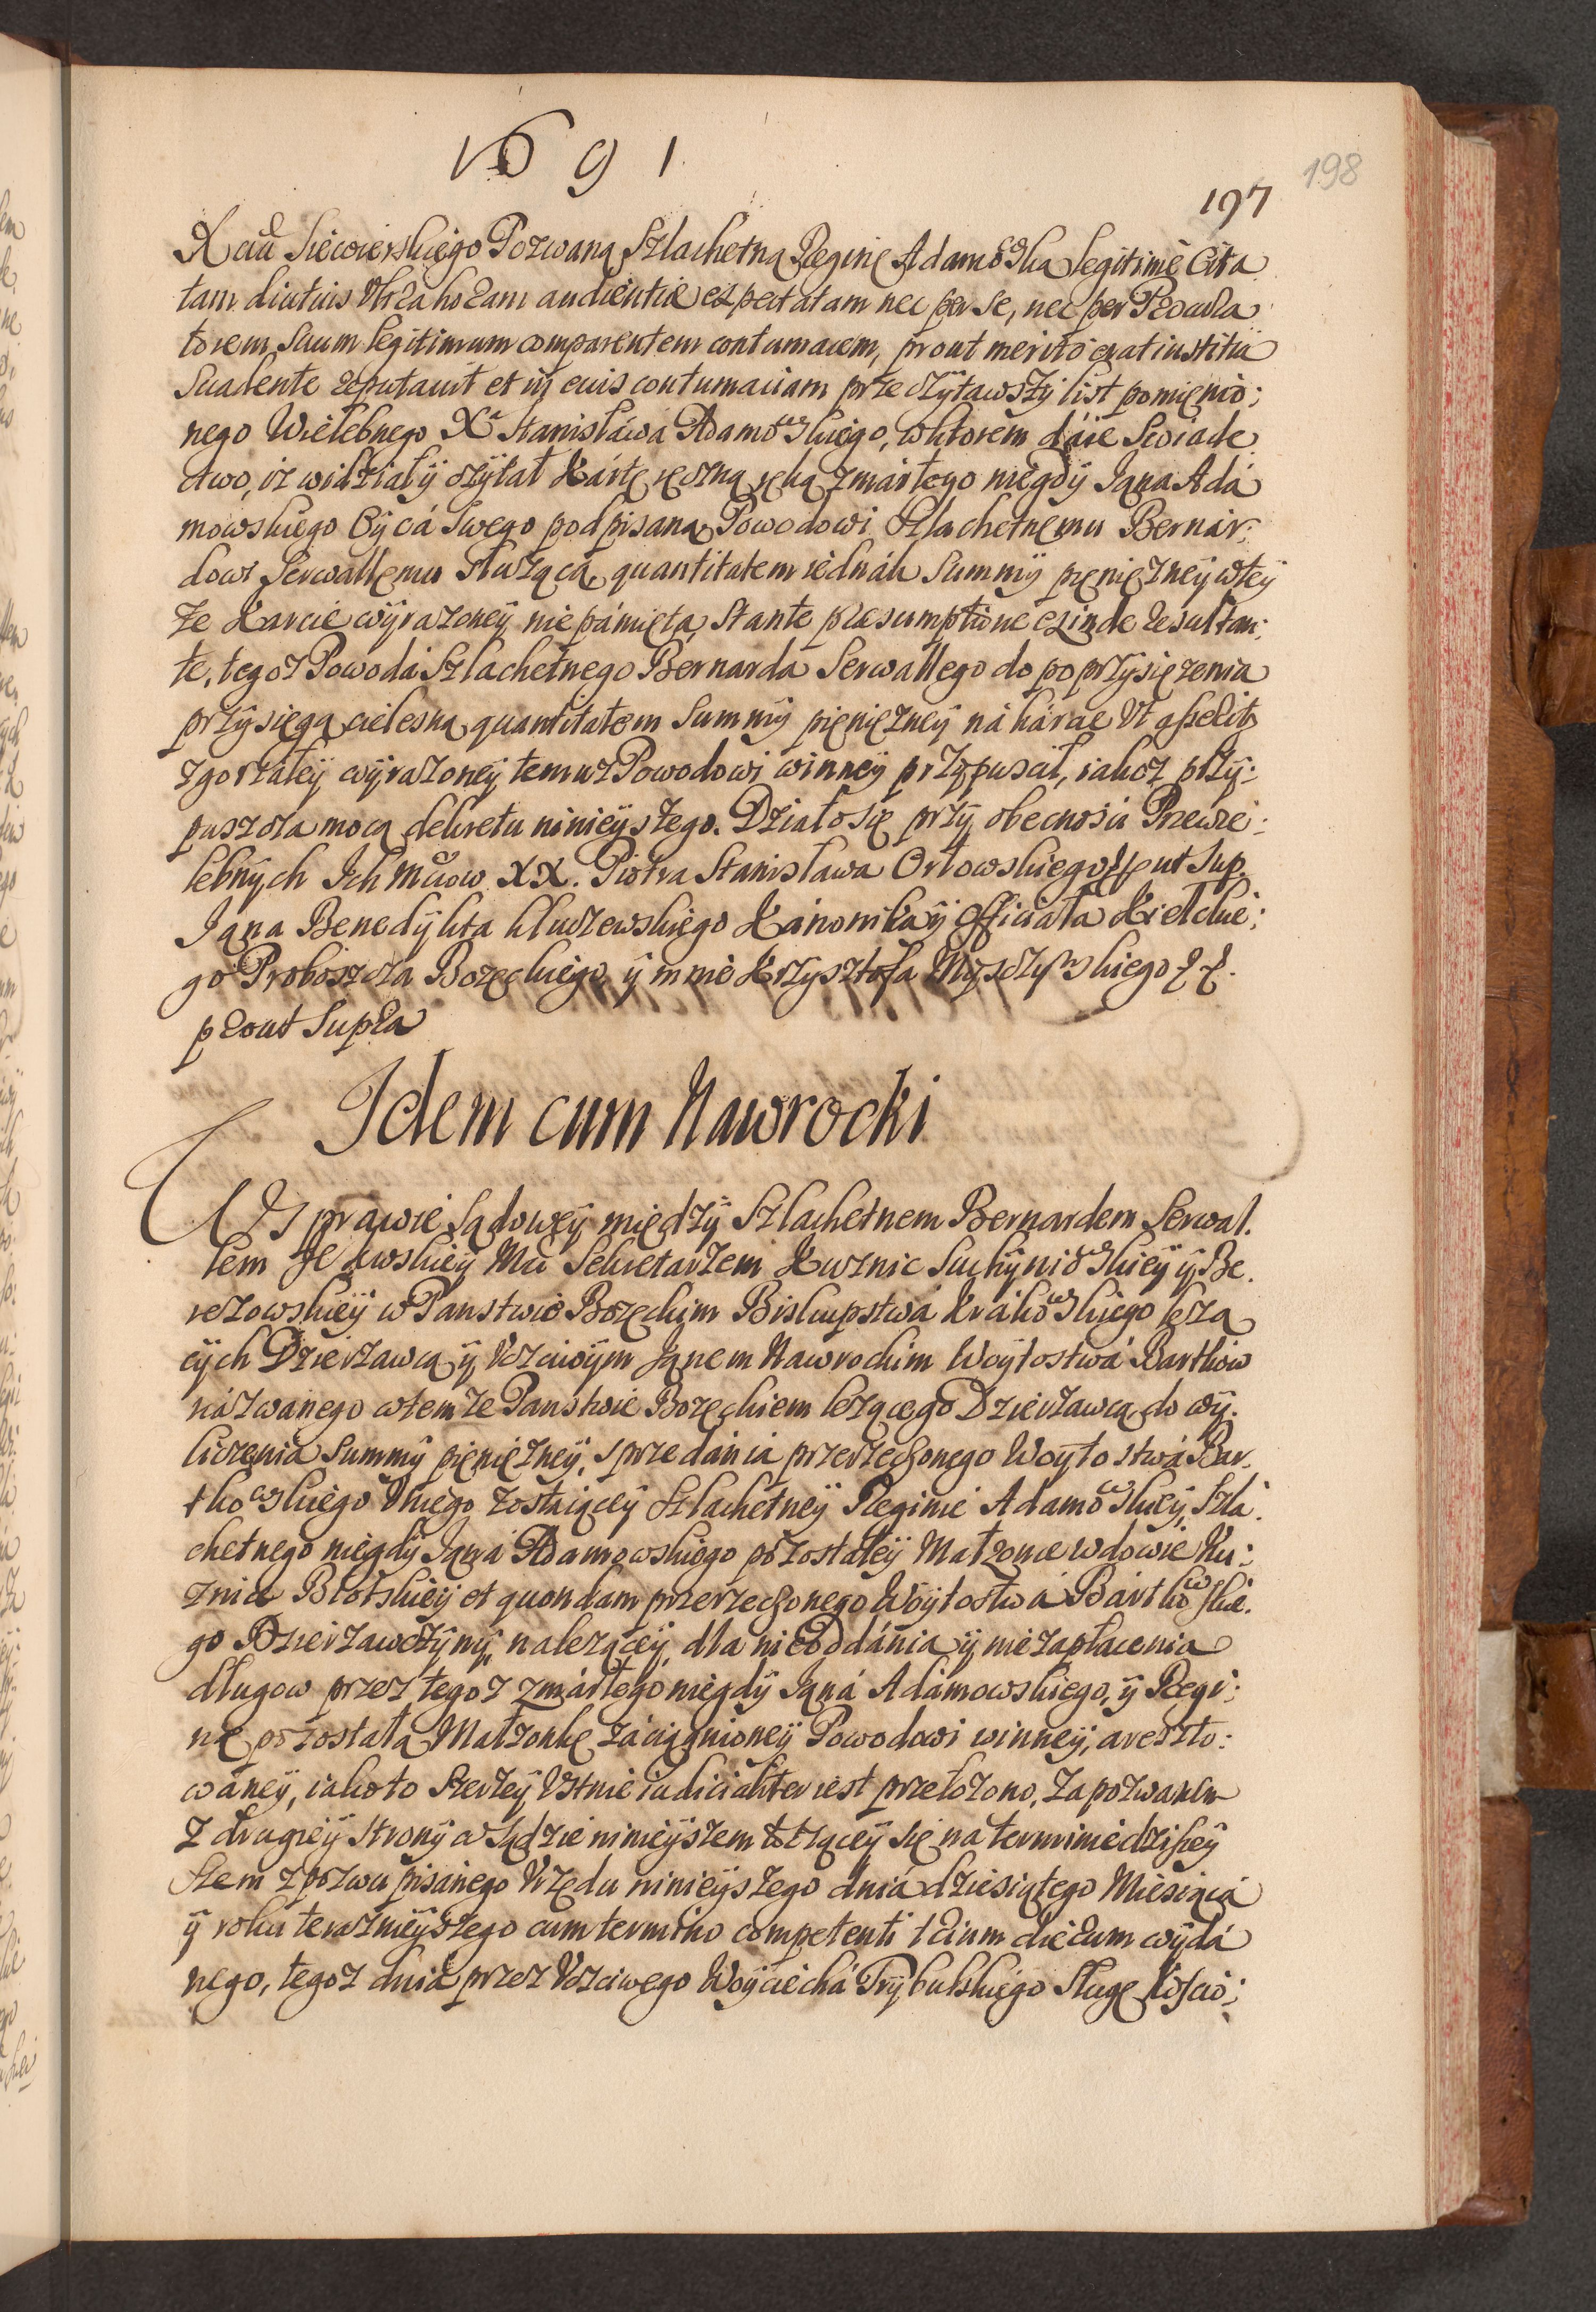 1691
198
197
Xcia Siewierskiego Pozwaną Szlachetną Reginę Adamowską legitimè Cita
tam diutius Ultra horam audientiæ expectatam nec per se, nec per Procura
torem suum legitimum comparentem contumacem, prout merito erat iustitia
Suadente reputavit et in eius contumaciam przeczytawszÿ list pomienio:
nego Wielebnego Xa Stanisława Adamowskiego, wktorem dáie Swiade
ctwo, iz widział ÿ czÿtał Kártę ręczną ręką zmárłego niegdÿ Jąna Adá
mowskiego Oÿcá Swego podpisaną Powodowi Szlachetnemu Bernár:
dowi Serwallemu służącą, quantitatem iednák Summÿ pięnięzneÿ wteÿ
ze Karcie wÿrazoneÿ nie pámięta, Stante præsumptione exinde resultan:
te, tegoz Powodá Szlachetnego Bernarda Serwallego do poprzÿsięzenia
przÿsięgą cielesną quantitatem Summÿ pięnięzneÿ ná kárcie Ut asserit
zgorzáłeÿ wÿrazoneÿ temuz Powodowi winneÿ przÿpuscił, iakoz przÿ:
puszcza mocą dekretu ninieÿszego. Działo się przÿ obecnosci Przewie:
lebnÿch Ich Mciow XX. Piotra Stanisława Orłowskiego ut Sup.
Jąna Benedÿkta Kluczewskiego Kánonika ÿ Officiała Kielckie:
go Proboszcza Bozęckiego, ÿ mnie Krzysztofa Mÿsczÿnskiego
prout Supra
Idem cum Nawrocki
W Sprawie Sądoweÿ międzÿ Szlachetnem Bernardem Serwal.
lem Je Kwskieÿ Mci Sekretarzem Kuznic Suchÿniowskieÿ ÿ Be.
rezowskieÿ w Panstwie Bozęckim Biskupstwá Krákowskiego lezą
cÿch Dzierzawcą ÿ Uczciwÿm Jąnem Nawrockim Woÿtostwá Bartkow
názwánego wtemze Panstwie Bozęckiem lezącego Dzierzawcą do wÿ.
liczenia Summÿ pięnięzneÿ, sprzedánia przerzeczonego Woÿtostwá Bar.
tkowskiego Uniego zostáiąceÿ Szlachetneÿ Reginie Adamowskieÿ, Szla:
chetnego niegdÿ Jąná Adamowskiego pozostáłeÿ Małzonce wdowie Ku:
znice Błotskieÿ et quondam przerzeczonego Woÿtostwá Bártkowskie.
go Dzierzawczÿnÿ, naleząceÿ, dla nieoddánia ÿ niezapłacenia
długow przez tegoz zmárłego niegdÿ Jąná Adámowskiego, ÿ Regi:
nę pozostałą Małzonkę záciągnioneÿ Powodowi winneÿ, areszto:
wáneÿ, iako to Szerzeÿ Ustnie iudicialiter iest przełozono, Zapozwanem
z drugieÿ Stronÿ w Sądzie ninieÿszem toczączeÿ się na terminie dzisieÿ
szem z pozwu pisánego Urzędu ninieÿszego dniá dziesiątego Miesiącá
ÿ roku teraznieÿszego cum termino competenti trium dierum wÿdá
nego, tegoz dnia przez Uczciwego Woÿciechá Trÿbulskiego Sługę Koscio: